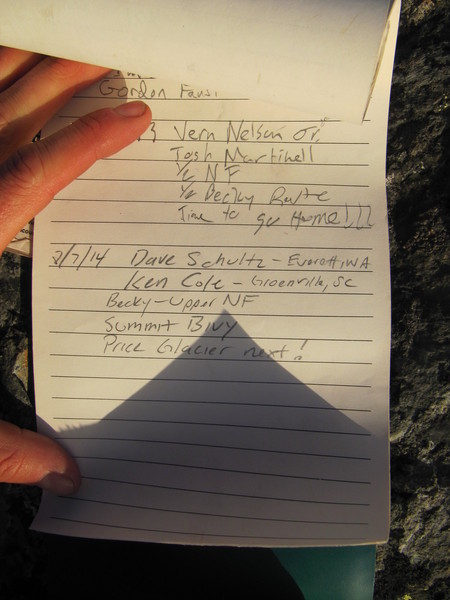 Gordon
3 Vern Nelson Jr.
Josh Martinell
NF
Becky Route
Time to go Home!!!
7/14 Dave Schultz - Everett, WA
Ken Cole - Greenville, SC
Becky - Upper NF
Summit Bivy
Price Glacier next!